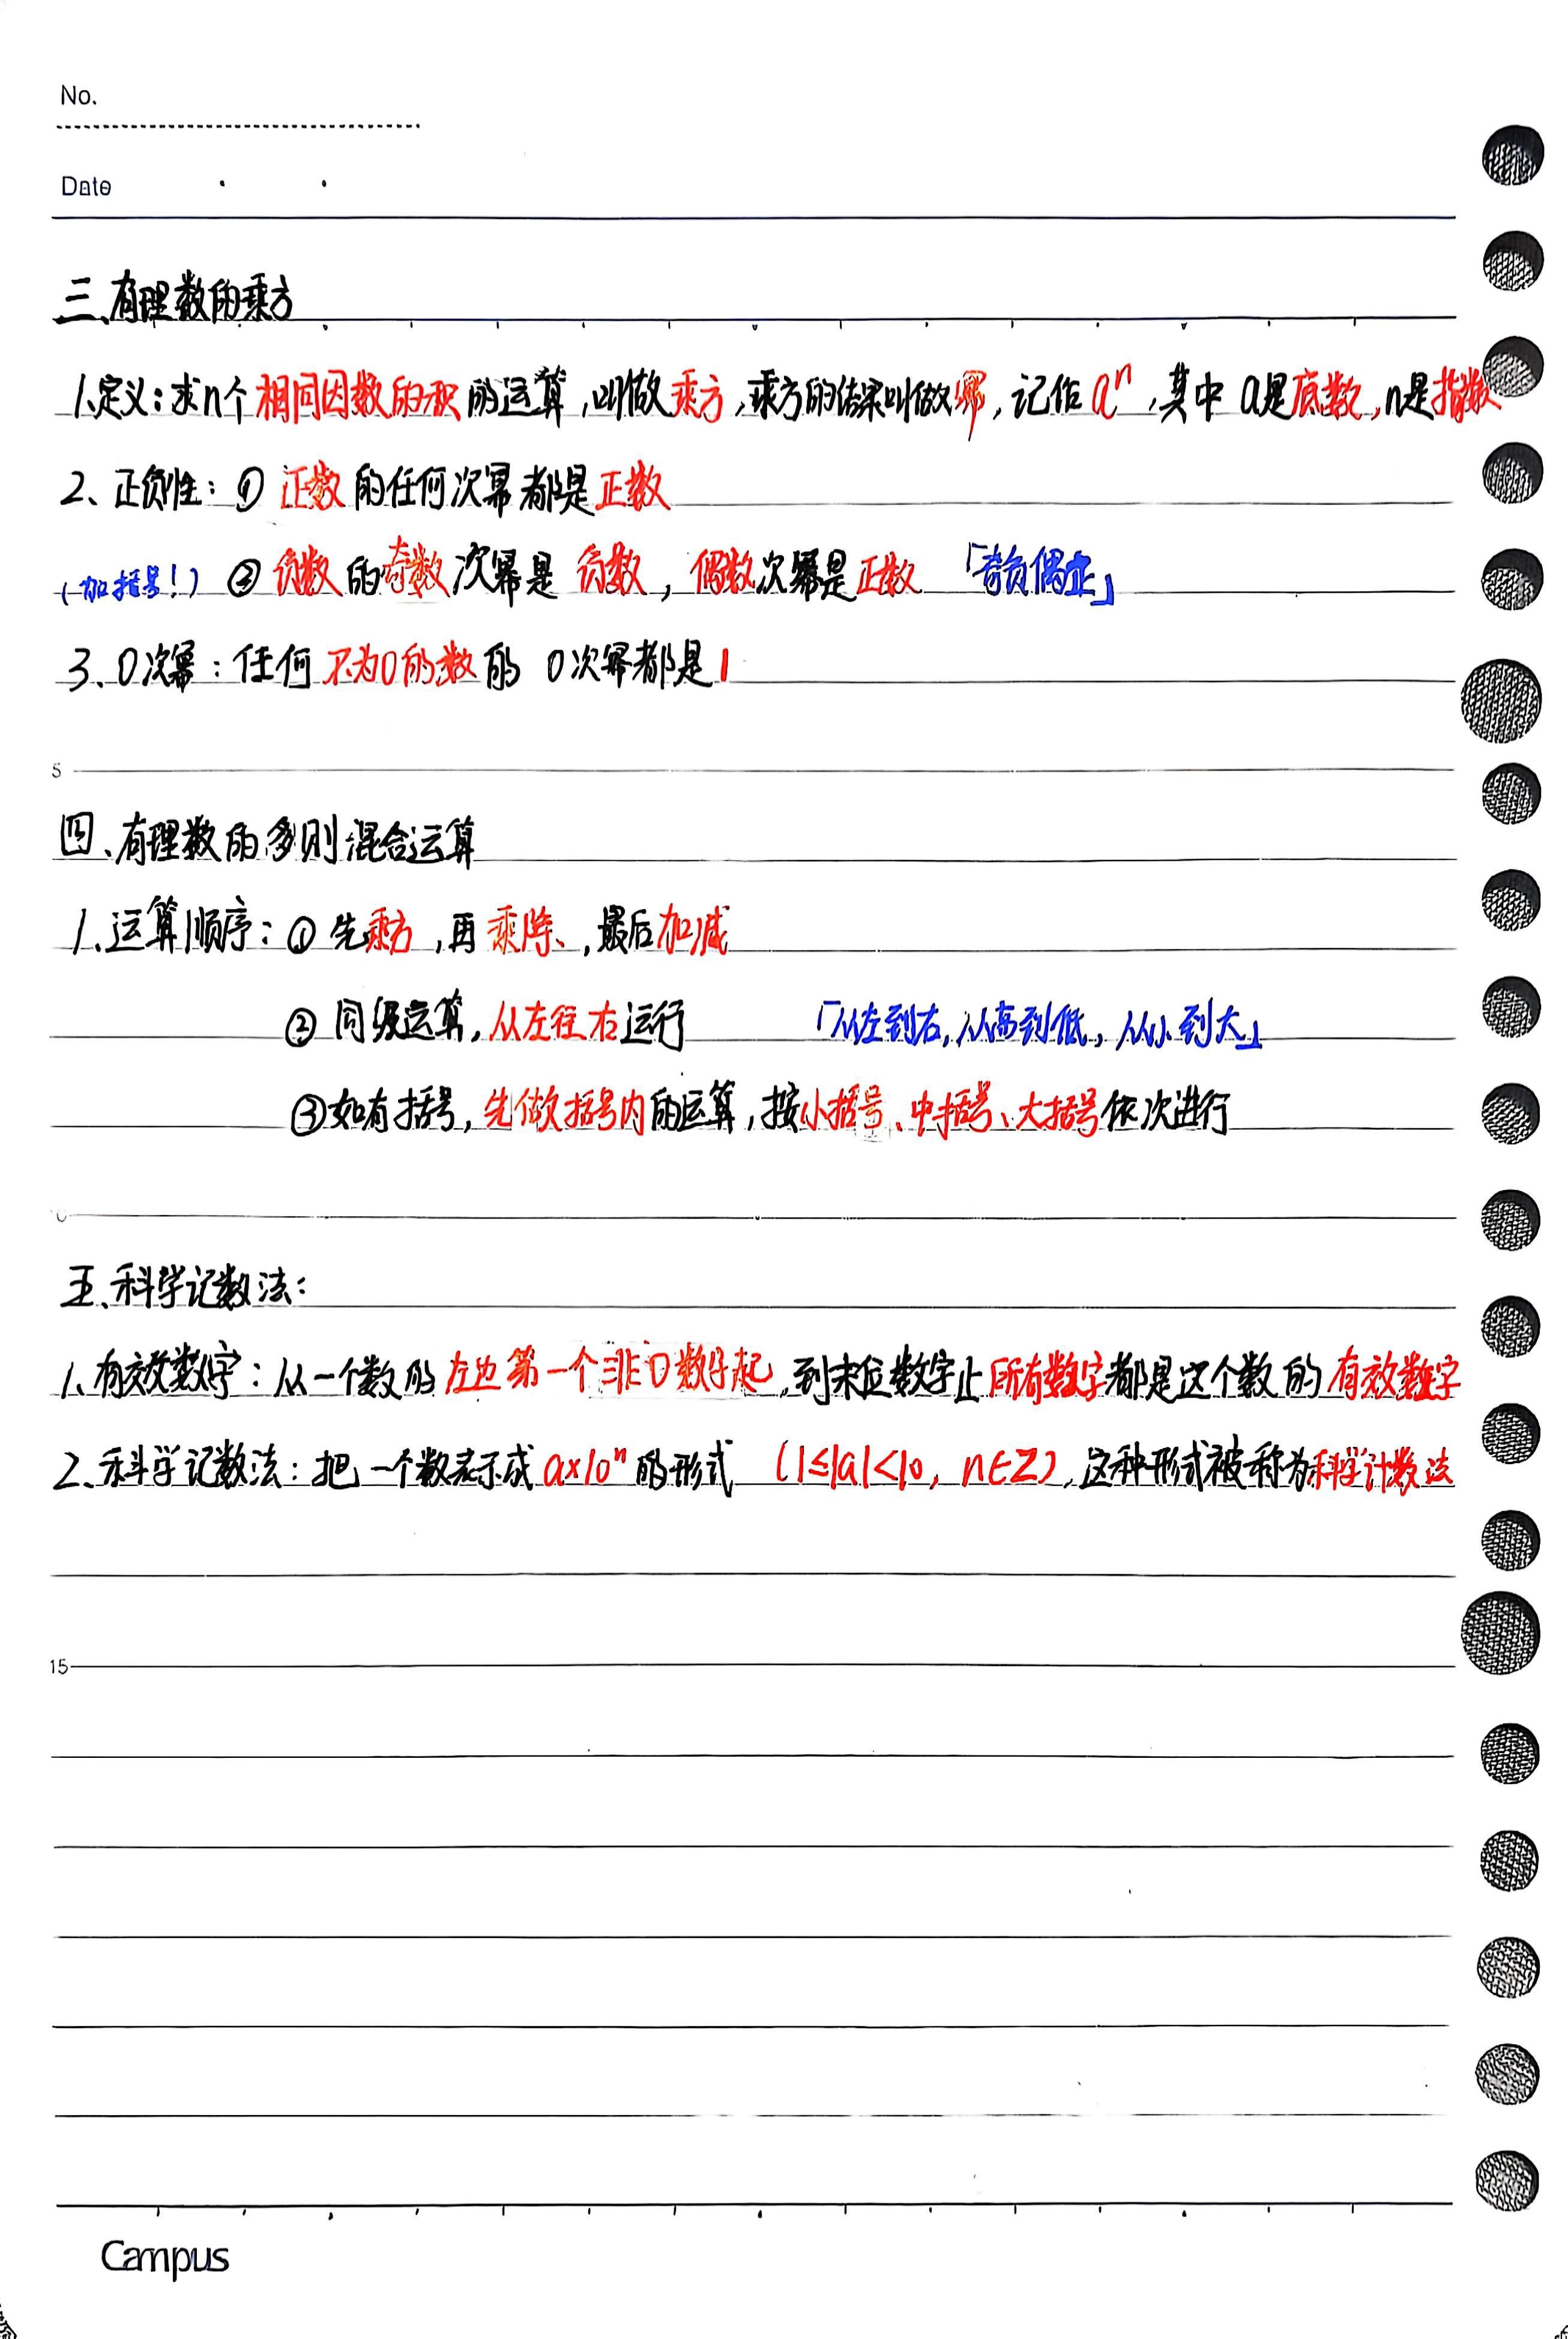 No.
Date
三、有理数的乘方
1.定义：求n个相同因数的积的运算，叫做乘方，乘方的结果叫做幂，记作aⁿ，其中a是底数，n是指数
2、正负性：① 正数的任何次幂都是正数
（加括号！）② 负数的奇数次幂是负数，偶数次幂是正数 「奇负偶正」
3、0次幂：任何不为0的数的 0次幂都是1
5
四、有理数的多则混合运算
1、运算顺序：① 先乘方，再乘除、，最后加减
② 同级运算，从左往右运行 「从左到右，从高到低，从小到大」
③如有括号，先做括号内的运算，按小括号、中括号、大括号依次进行
五、科学记数法：
1、有效数字：从一个数的左边第一个非0数字起，到末位数字止所有数字都是这个数的有效数字
2、科学记数法：把一个数表示成a×10ⁿ的形式 (1≤|a|<10, n∈Z)，这种形式被称为科学计数法
15
Campus